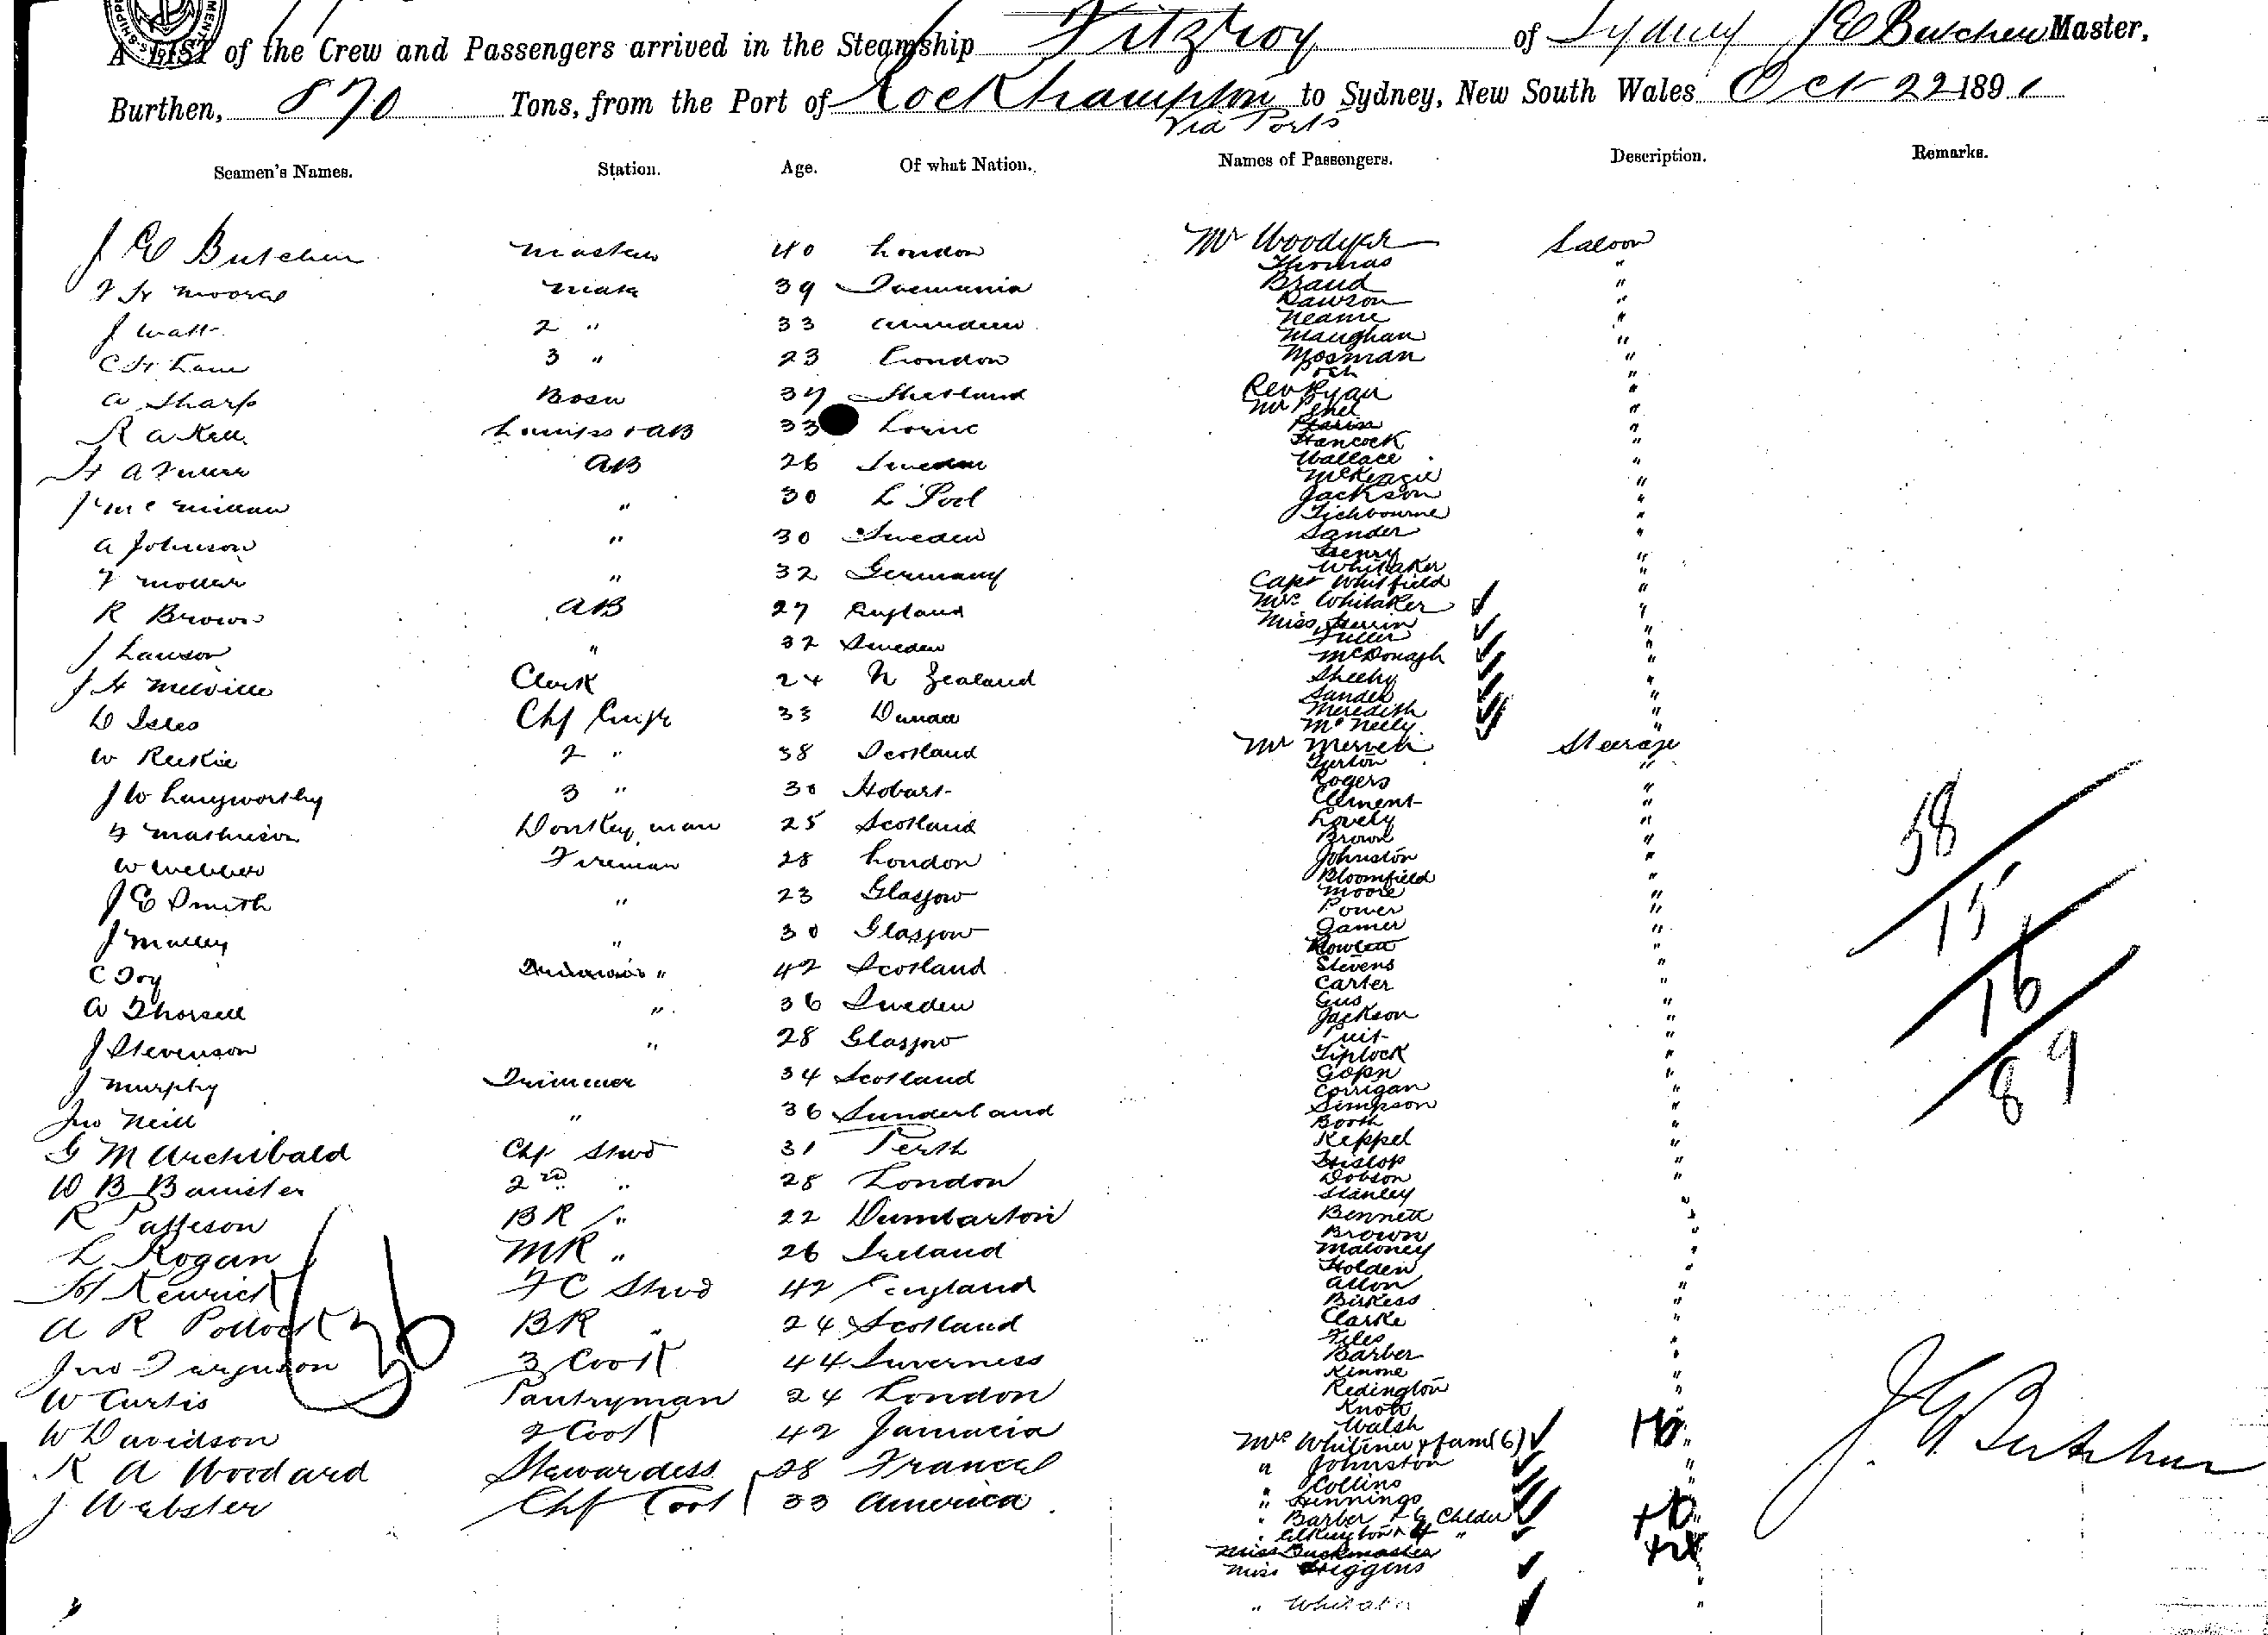 A LIST of the Crew and Passengers arrived in the Steamship Fitzroy of Sydney J E Butcher Master,
Burthen, 870 Tons, from the Port of Rockhampton to Sydney, New South Wales Oct 22 1891
Via Ports
Seamen's Names. Station. Age. Of what Nation. Names of Passengers. Description. Remarks.
J E Butcher Master 40 London
J Watt 2 " 33
C H Lane 3 " 23 London
A Sharp Bosn 37 Shetland
R A Kell Lamps & AB 33
AB 26 Sweden
J McMillan " 30 L'Pool
A Johnson " 30 Sweden
F Moller " 32 Germany
R Brown AB 27 England
J Lawson " 32 Sweden
J H Melville Clerk 24 N Zealand
D Isles Chf Engr 33 Dundee
W Reekie 2 " 38 Scotland
J W Langworthy 3 " 30 Hobart
Donkeyman 25 Scotland
W Webber Fireman 28 London
J E Smith " 23 Glasgow
J Malley " 30 Glasgow
C Toy " 42 Scotland
A Thorsell " 36 Sweden
J Stevenson " 28 Glasgow
J Murphy Trimmer 34 Scotland
Jno Neill " 36 Sunderland
G M Archibald Chf Stwd 31 Perth
W B Banister 2nd " 28 London
R Patteson BR " 22 Dumbarton
L Rogan MR " 26 Ireland
H Kenrick FC Stwd 42 England
A R Pollock BR " 24 Scotland
Jno Ferguson 3 Cook 44 Inverness
W Curtis Pantryman 24 London
W Davidson 2 Cook 42 Jamacia
R A Woodard Stewardess 28 France
J Webster Chf Cook 33 America
36
Mr Woodyer Saloon
Thomas "
Braud "
Dawson "
Neame "
Maughan "
Mosman "
Rev Ryan "
Hancock "
Wallace "
McKenzie "
Jackson "
Tichbourne "
Sander "
Henry "
Whitaker "
Capt Whitfield "
Mrs Whitaker "
Fuller "
McDonagh "
Sheehy "
Sander "
Meredith "
McNeely "
Steerage
Rogers "
Clement "
Lovely "
Brown "
Johnston "
Bloomfield "
Moore "
Power "
Gamer "
Stevens "
Carter "
Gus "
Jackson "
Tiplock "
Corrigan "
Simpson "
Booth "
Keppel "
Hislop "
Dobson "
Stanley "
Bennett "
Brown "
Maloney "
Holden "
Allon "
Birkess "
Clarke "
Files "
Barber "
Kinone "
Redington "
Knott "
Walsh "
Johnston "
" Collins "
" Hennings "
" Barber "
Miss Buckmaster
Miss Higgins "
"
58
15
16
89
J. E. Butcher